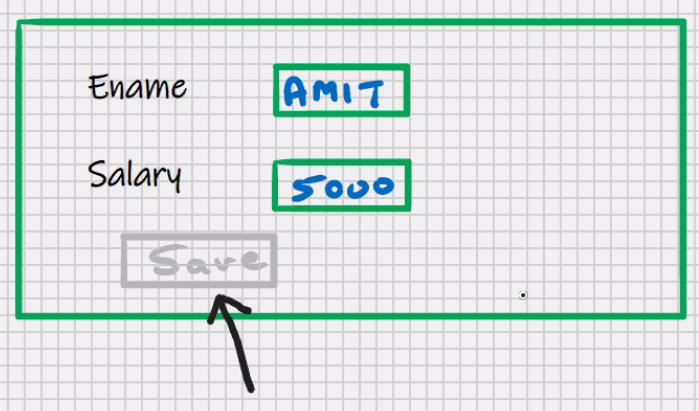 Ename AMIT
Salary 5000
Save